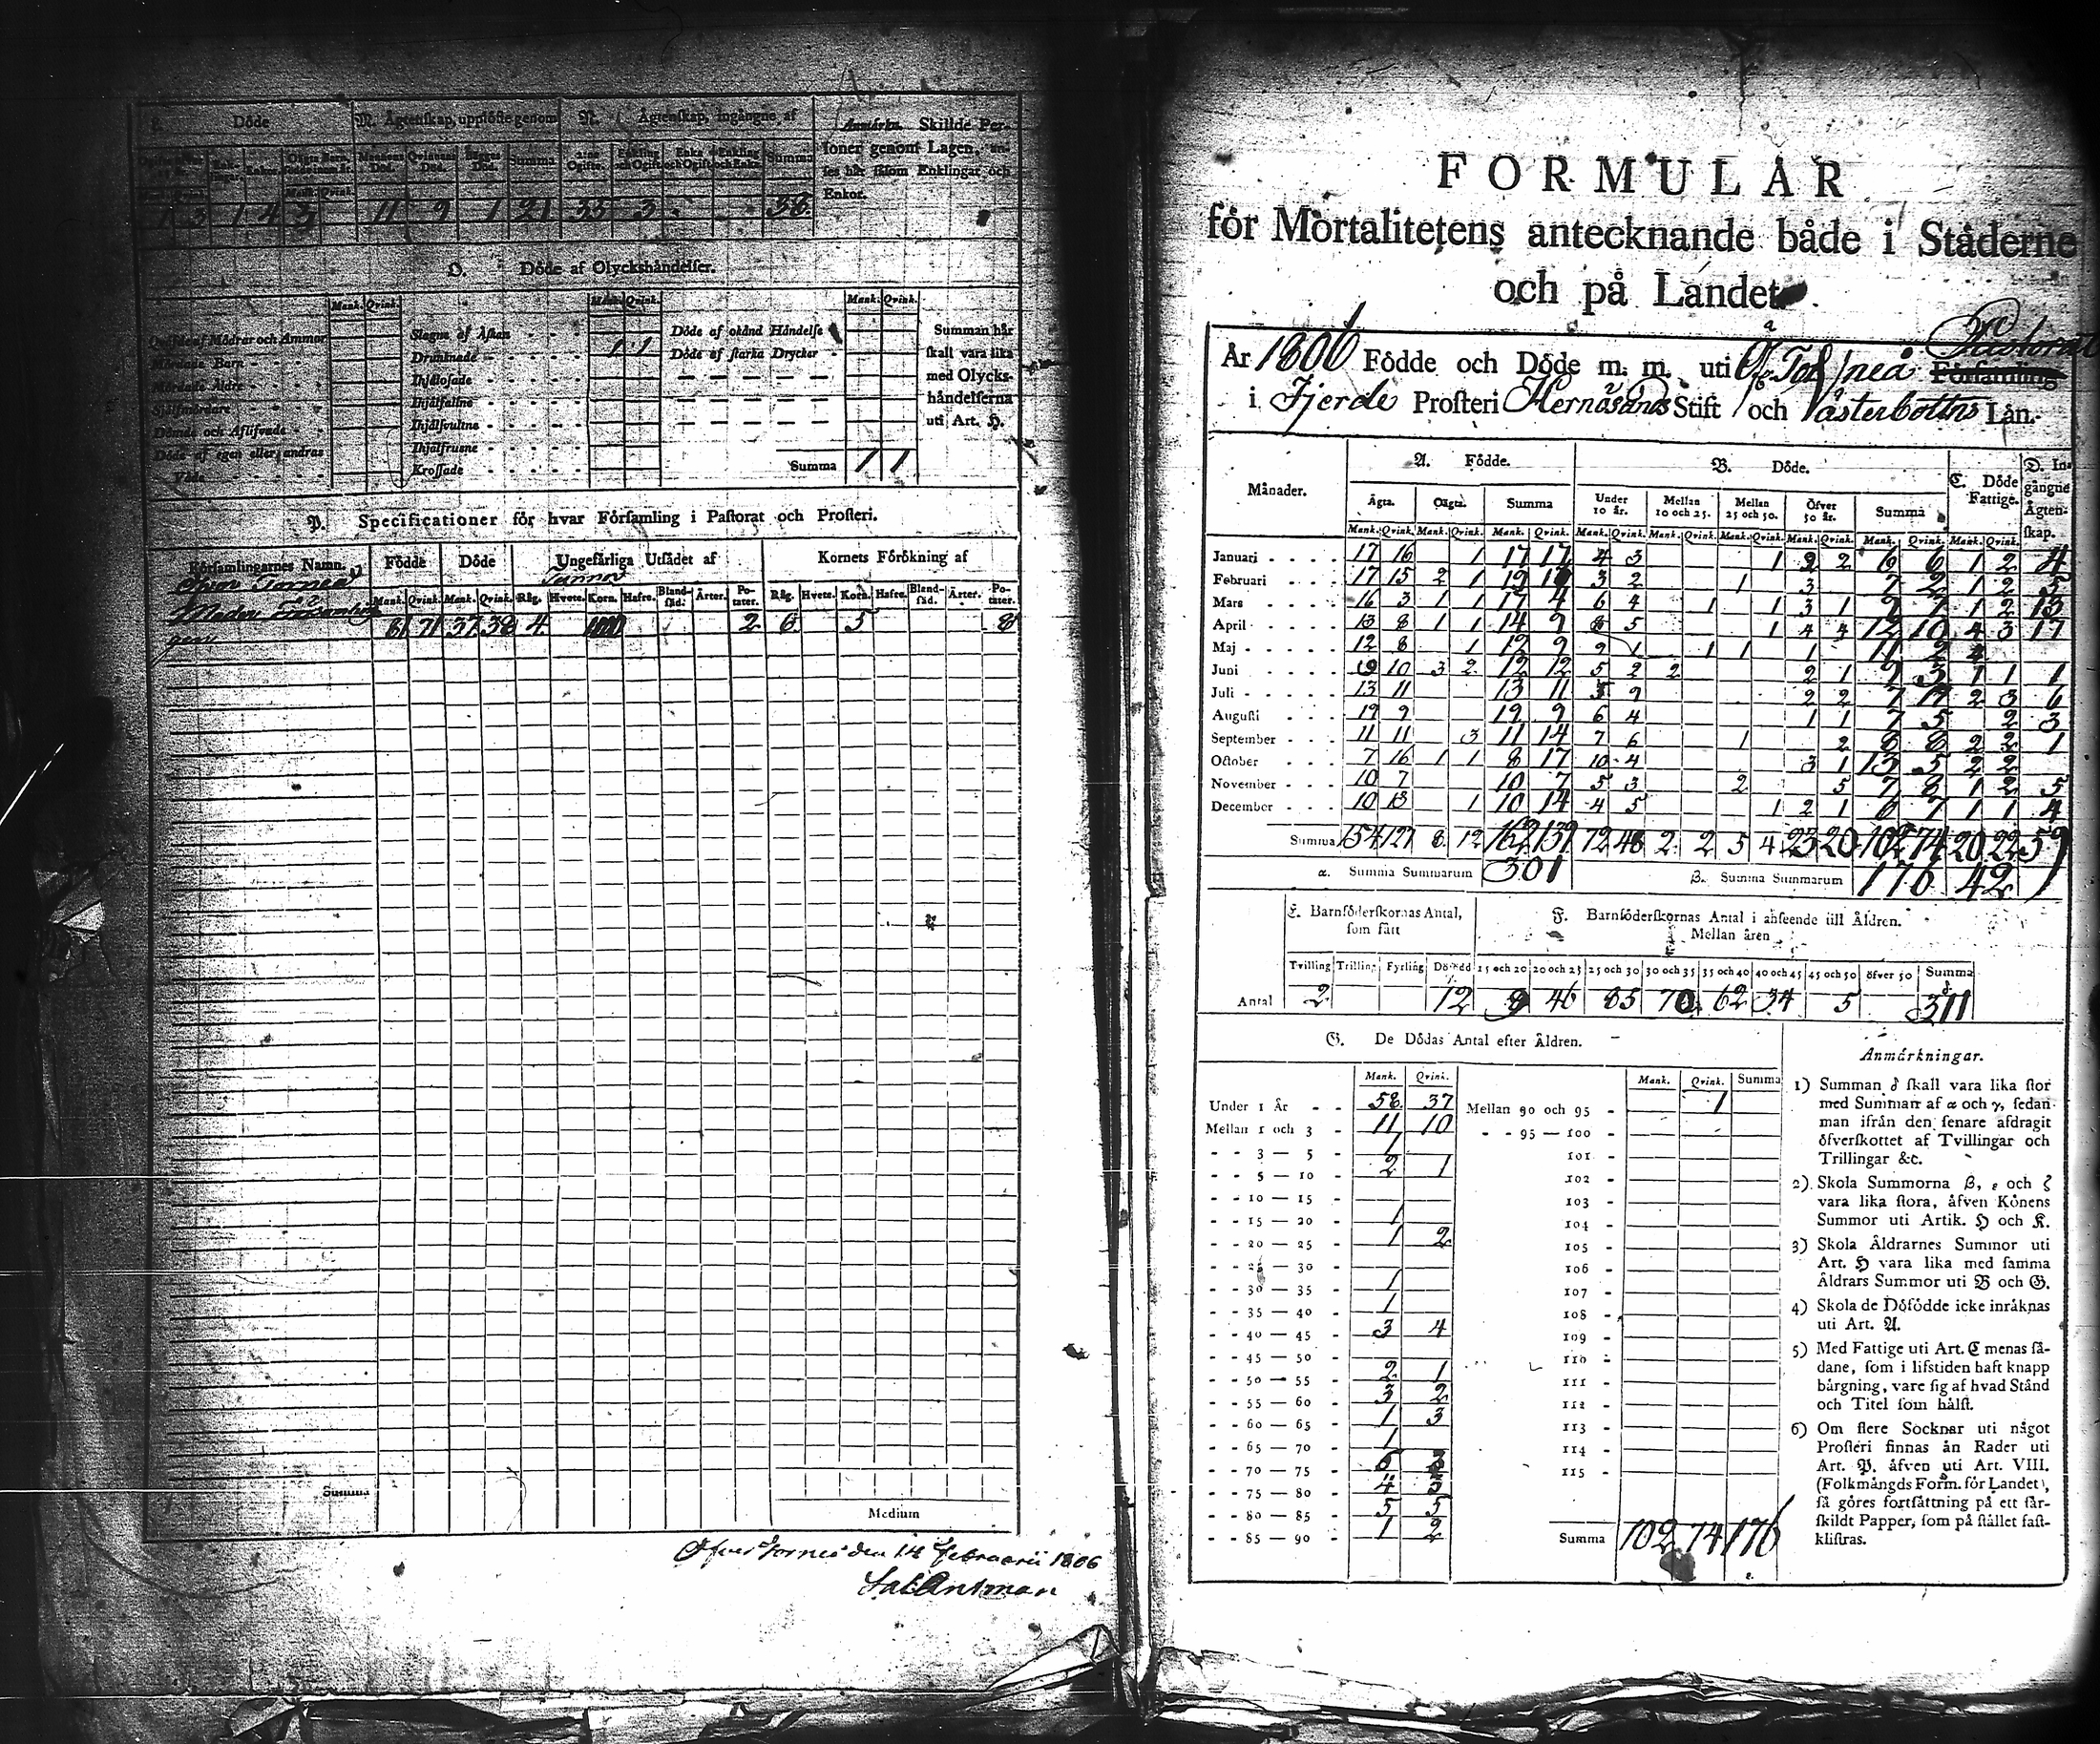 L. Döde
M. Ågtenskap, upplöste genom
N. Ågtenskap, ingångne, af
Anmårkn. Skillde Personer
genom Lagen, an-
ses här såsom Enklingar och
Enkor.
Mannens Död. Qvinnans Död. Bågges Död. Summa
Summa
1 3 1 4 3 11 9 1 21 35 3 38
O. Döde af Olyckshåndelser.
Mank. Qvink. Mank. Qvink. Mank. Qvink.
Qvåfde af Mödrar och Ammor
Mördade Barn
Mördade Åldre
Sjålfmördare
Dömde och Aflifvade
Döde af egen eller andras
Våda
Slagne af Åskan
Drunknade 1 1
Ihjålosade
Ihjålfallne
Ihjålsvultne
Ihjålfrusne
Krossade
Döde af okånd Håndelse
Döde af starka Drycker
Summa 1 1
Summan hår
skall vara lika
med Olycks-
håndelserna
uti Art. H.
P. Specificationer för hvar Församling i Pastorat och Prosteri.
Församlingarnes Namn. Födde Döde Ungefårliga Utsådet af Kornets Förökning af
Tunnor
Mank. Qvink. Mank. Qvink. Råg. Hvete. Korn. Hafre. Bland-såd. Årter. Po-tater. Råg. Hvete. Korn. Hafre. Bland-såd. Årter. Po-tater.
Öfver Torneå
81 71 37 38 4 2 6 5 8
Summa
Medium
Öfver Torneå den 14 Februarii 1806
FORMULAR
för Mortalitetens antecknande både i Städerne
och på Landet.
År 1806 Födde och Döde m. m. uti Öfr Torneå Pastorat Församling
i Fjerde Prosteri Hernösands Stift och Västerbottns Lån.
Månader. A. Födde. B. Döde. C. Döde Fattige. D. Ingångne Ågtenskap.
Ågta. Oågta. Summa Under 10 år. Mellan 10 och 25. Mellan 25 och 50. Öfver 50 år. Summa
Mank. Qvink. Mank. Qvink. Mank. Qvink. Mank. Qvink. Mank. Qvink. Mank. Qvink. Mank. Qvink. Mank. Qvink. Mank. Qvink.
Januari 17 16 1 17 17 4 3 1 2 2 6 6 1 2 4
Februari 17 15 2 1 19 16 3 2 1 3 7 2 1 2 5
Mars 16 3 1 1 17 4 6 4 1 1 3 1 9 7 1 2 13
April 13 8 1 1 14 9 8 5 1 4 4 12 10 4 3 17
Maj 12 8 1 12 9 9 1 1 1 1 11 2 4
Juni 9 10 3 2 12 12 5 2 2 2 1 9 3 1 1 1
Juli 13 11 13 11 5 9 2 2 7 11 2 3 6
Augusti 19 9 19 9 6 4 1 1 7 5 2 3
September 11 11 3 11 14 7 6 1 2 8 8 2 2 1
October 7 16 1 1 8 17 10 4 3 1 13 5 2 2
November 10 7 10 7 5 3 2 5 7 8 1 2 5
December 10 13 1 10 14 4 5 1 2 1 6 7 1 1 4
Summa 154 127 8 12 162 139 72 48 2 2 5 4 23 20 102 74 20 22 59
α. Summa Summarum 301 β. Summa Summarum 176 42
E. Barnföderskornas Antal, som fått
F. Barnföderskornas Antal i anseende till Åldren.
Mellan åren
Tvilling Trilling Fyrling Dödfödd 15 och 20 20 och 25 25 och 30 30 och 35 35 och 40 40 och 45 45 och 50 öfver 50 Summa
Antal 2 12 9 46 85 70 62 34 5 311
G. De Dödas Antal efter Åldren.
Mank. Qvink. Mank. Qvink. Summa
Under 1 År 58 37
Mellan 1 och 3 11 10
3 — 5 1
5 — 10 2 1
10 — 15
15 — 20 1
20 — 25 1 2
25 — 30
30 — 35 1
35 — 40 1
40 — 45 3 4
45 — 50
50 — 55 2 1
55 — 60 3 2
60 — 65 1 3
65 — 70 1
70 — 75 6
75 — 80 4
80 — 85 5 5
85 — 90 1 2
Mellan 90 och 95 1
95 — 100
101
102
103
104
105
106
107
108
109
110
111
112
113
114
115
Summa 102 74 176
Anmårkningar.
1) Summan δ skall vara lika stor
med Summan af α och γ, sedan
man ifrån den senare afdragit
öfverskottet af Tvillingar och
Trillingar &c.
2) Skola Summorna β, ε och ζ
vara lika stora, åfven Könens
Summor uti Artik. H och K.
3) Skola Åldrarnes Summor uti
Art. H vara lika med samma
Åldrars Summor uti B och G.
4) Skola de Döfödde icke inråknas
uti Art. A.
5) Med Fattige uti Art. C menas så-
dane, som i lifstiden haft knapp
bårgning, vare sig af hvad Stånd
och Titel som hålst.
6) Om flere Socknar uti något
Prosteri finnas ån Rader uti
Art. P. åfven uti Art. VIII.
(Folkmångds Form. för Landet),
så göres fortsåttning på ett sår-
skildt Papper, som på stållet fast-
klistras.